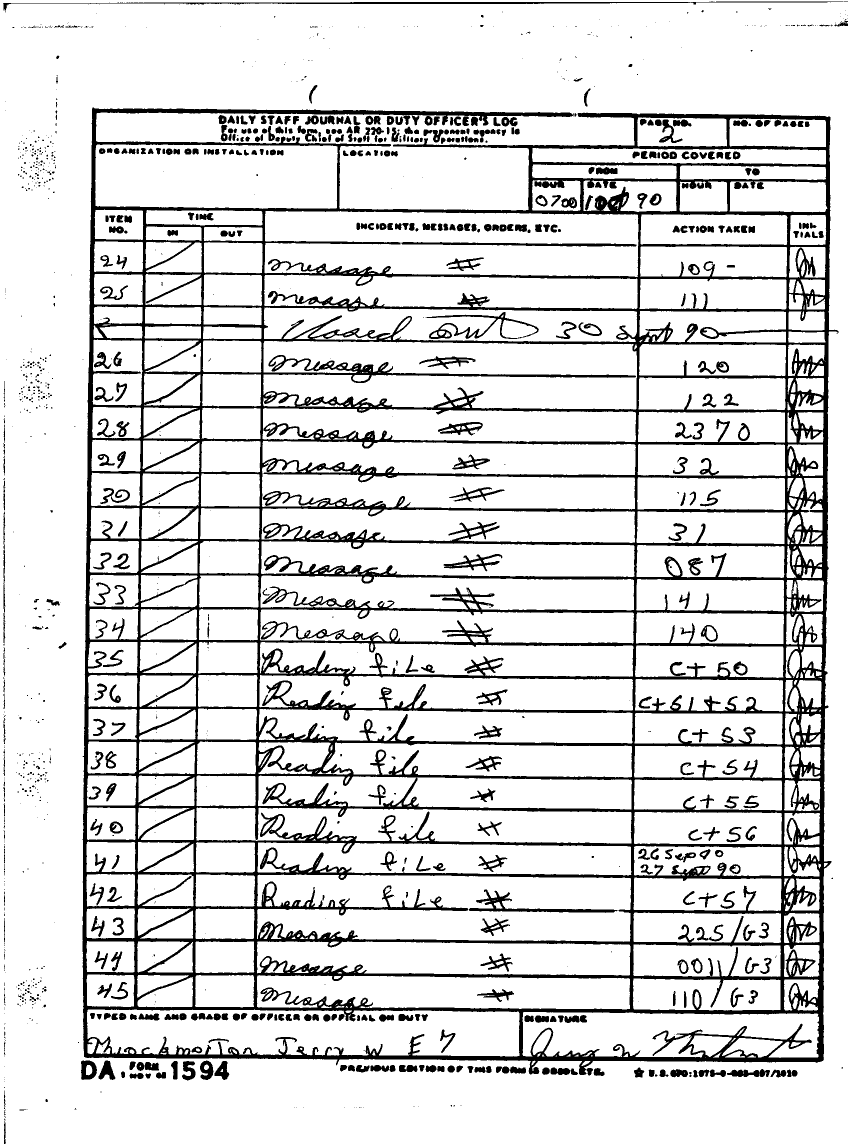 DAILY STAFF JOURNAL OR DUTY OFFICER'S LOG
For use of this form, see AR 220-15; the proponent agency is
Office of Deputy Chief of Staff for Military Operations.
PAGE NO.
2
NO. OF PAGES
ORGANIZATION OR INSTALLATION
LOCATION
PERIOD COVERED
FROM
TO
HOUR DATE HOUR DATE
0700 90
ITEM NO. TIME INCIDENTS, MESSAGES, ORDERS, ETC. ACTION TAKEN INI-TIALS
IN OUT
24 Message # 109-
25 Message # 111
Closed out 30 Sept 90
26 Message # 120
27 Message # 122
28 Message # 2370
29 Message # 32
30 Message # 115
31 Message # 31
32 Message # 087
33 Message # 141
34 Message # 140
35 Reading file # C+50
36 Reading file # C+51+52
37 Reading file # C+53
38 Reading file # C+54
39 Reading file # C+55
40 Reading file # C+56
41 Reading file # 26 Sep 90
27 Sept 90
42 Reading file # C+57
43 Message # 225/G3
44 Message # 0011/G3
45 Message # 110/G3
TYPED NAME AND GRADE OF OFFICER OR OFFICIAL ON DUTY
Throckmorton Jerry W E7
SIGNATURE
DA FORM 1 NOV 1594
PREVIOUS EDITION OF THIS FORM IS OBSOLETE.